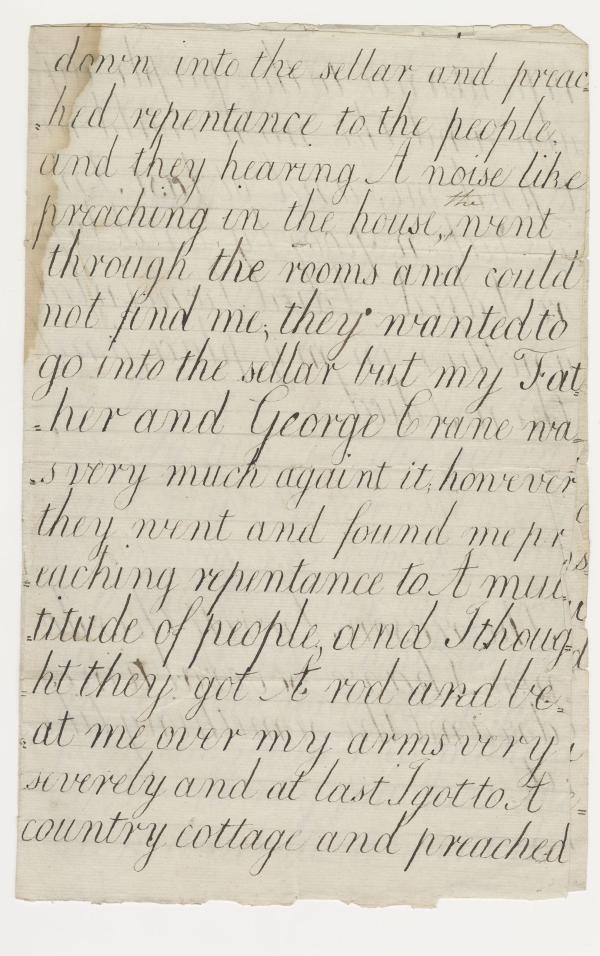 down into the sellar and preac=
=hed repentance to the people,
and they hearing A noise like
preaching in the house, the went
through the rooms and could
not find me; they wanted to
go into the sellar but my Fat=
=her and George Crane wa=
=s very much againt it; however
they went and found me pr
=eaching repentance to A mul=
=titude of people, and I thoug=
=ht they got A rod and be=
=at me over my arms very
severely and at last I got to A
country cottage and preached